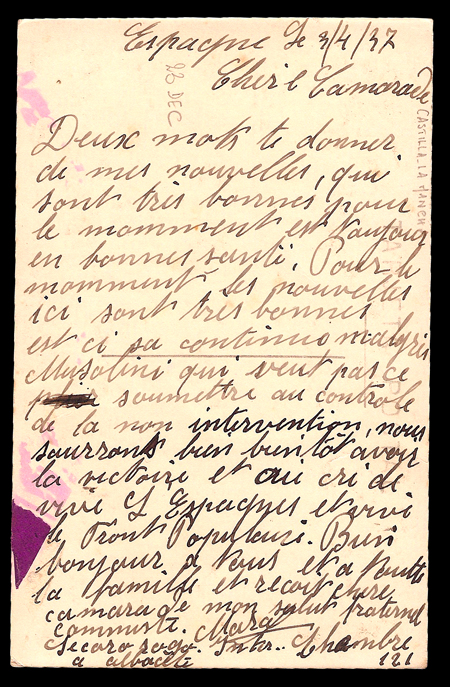 Espagne le 3/4/37
23 DEC
Cher e Camarade
CASTILLA-LA MANCH
Deux mots te donner
de mes nouvelles, qui
sont très bonnes, pour
le momment est toujour
en bonnes santé. Pour le
momment les nouvelles
ici sont tres bonnes
est ci sa continuo malgrés
Musolini qui veut pas ce
soumettre au controle
de la non intervention, nous
saurronts bien bientôt avoir
la victoire et au cri de
vive L Espagnes et vivi
le Front Populaire. Bien
bonjour a tous et a toute
la famille et recoit chere
camarade mon salut fraternel
communiste.
Socoro rogo. Inter. Chambre
a albacète 121